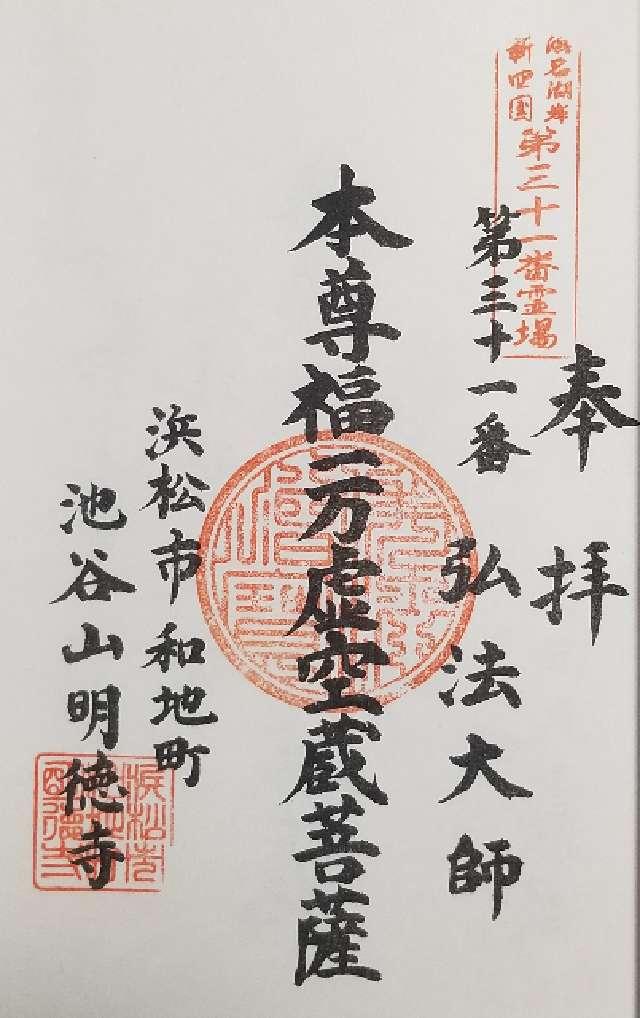 浜名湖岸
新四国
第三十一番霊場
奉拝
第三十一番
弘法大師
本尊福一万虚空蔵菩薩
浜松市和地町
池谷山明徳寺